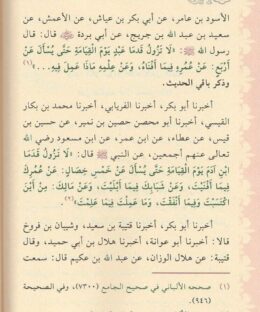 الأسود بن عامر، عن أبي بكر بن عياش، عن الأعمش، عن
سعيد بن عبد الله بن جريج، عن أبي بردة ﷺ قال: قال
رسول الله ﷺ: «لَا تَزُولُ قَدَمَا عَبْدٍ يَوْمَ الْقِيَامَةِ حَتَّى يُسْأَلَ عَنْ
أَرْبَعٍ: عَنْ عُمُرِهِ فِيمَا أَفْنَاهُ، وَعَنْ عِلْمِهِ مَاذَا عَمِلَ فِيهِ...»(١)
وذكر باقي الحديث.
أخبرنا أبو بكر، أخبرنا الفريابي، أخبرنا محمد بن بكار
القيسي، أخبرنا أبو محصن حصين بن نمير، عن حسين بن
قيس، عن عطاء، عن ابن عمر، عن ابن مسعود رضي الله
تعالى عنهم أجمعين، عن النبي ﷺ قال: «لَا تَزُولُ قَدَمَا
ابْنِ آدَمَ يَوْمَ الْقِيَامَةِ حَتَّى يُسْأَلَ عَنْ خَمْسِ خِصَالٍ: عَنْ عُمُرِكَ
فِيمَا أَفْنَيْتَ، وَعَنْ شَبَابِكَ فِيمَا أَبْلَيْتَ، وَعَنْ مَالِكَ: مِنْ أَيْنَ
اكْتَسَبْتَ وَفِيمَا أَنْفَقْتَ، وَمَا عَمِلْتَ فِيمَا عَلِمْتَ»(٢).
أخبرنا أبو بكر، أخبرنا قتيبة بن سعيد، وشيبان بن فروخ
قالا: أخبرنا أبو عوانة، أخبرنا هلال بن أبي حميد، وقال
قتيبة: عن هلال الوزان، عن عبد الله بن عكيم قال: سمعت
(١) صححه الألباني في صحيح الجامع (٧٣٠٠)، وفي الصحيحة
(٩٤٦).